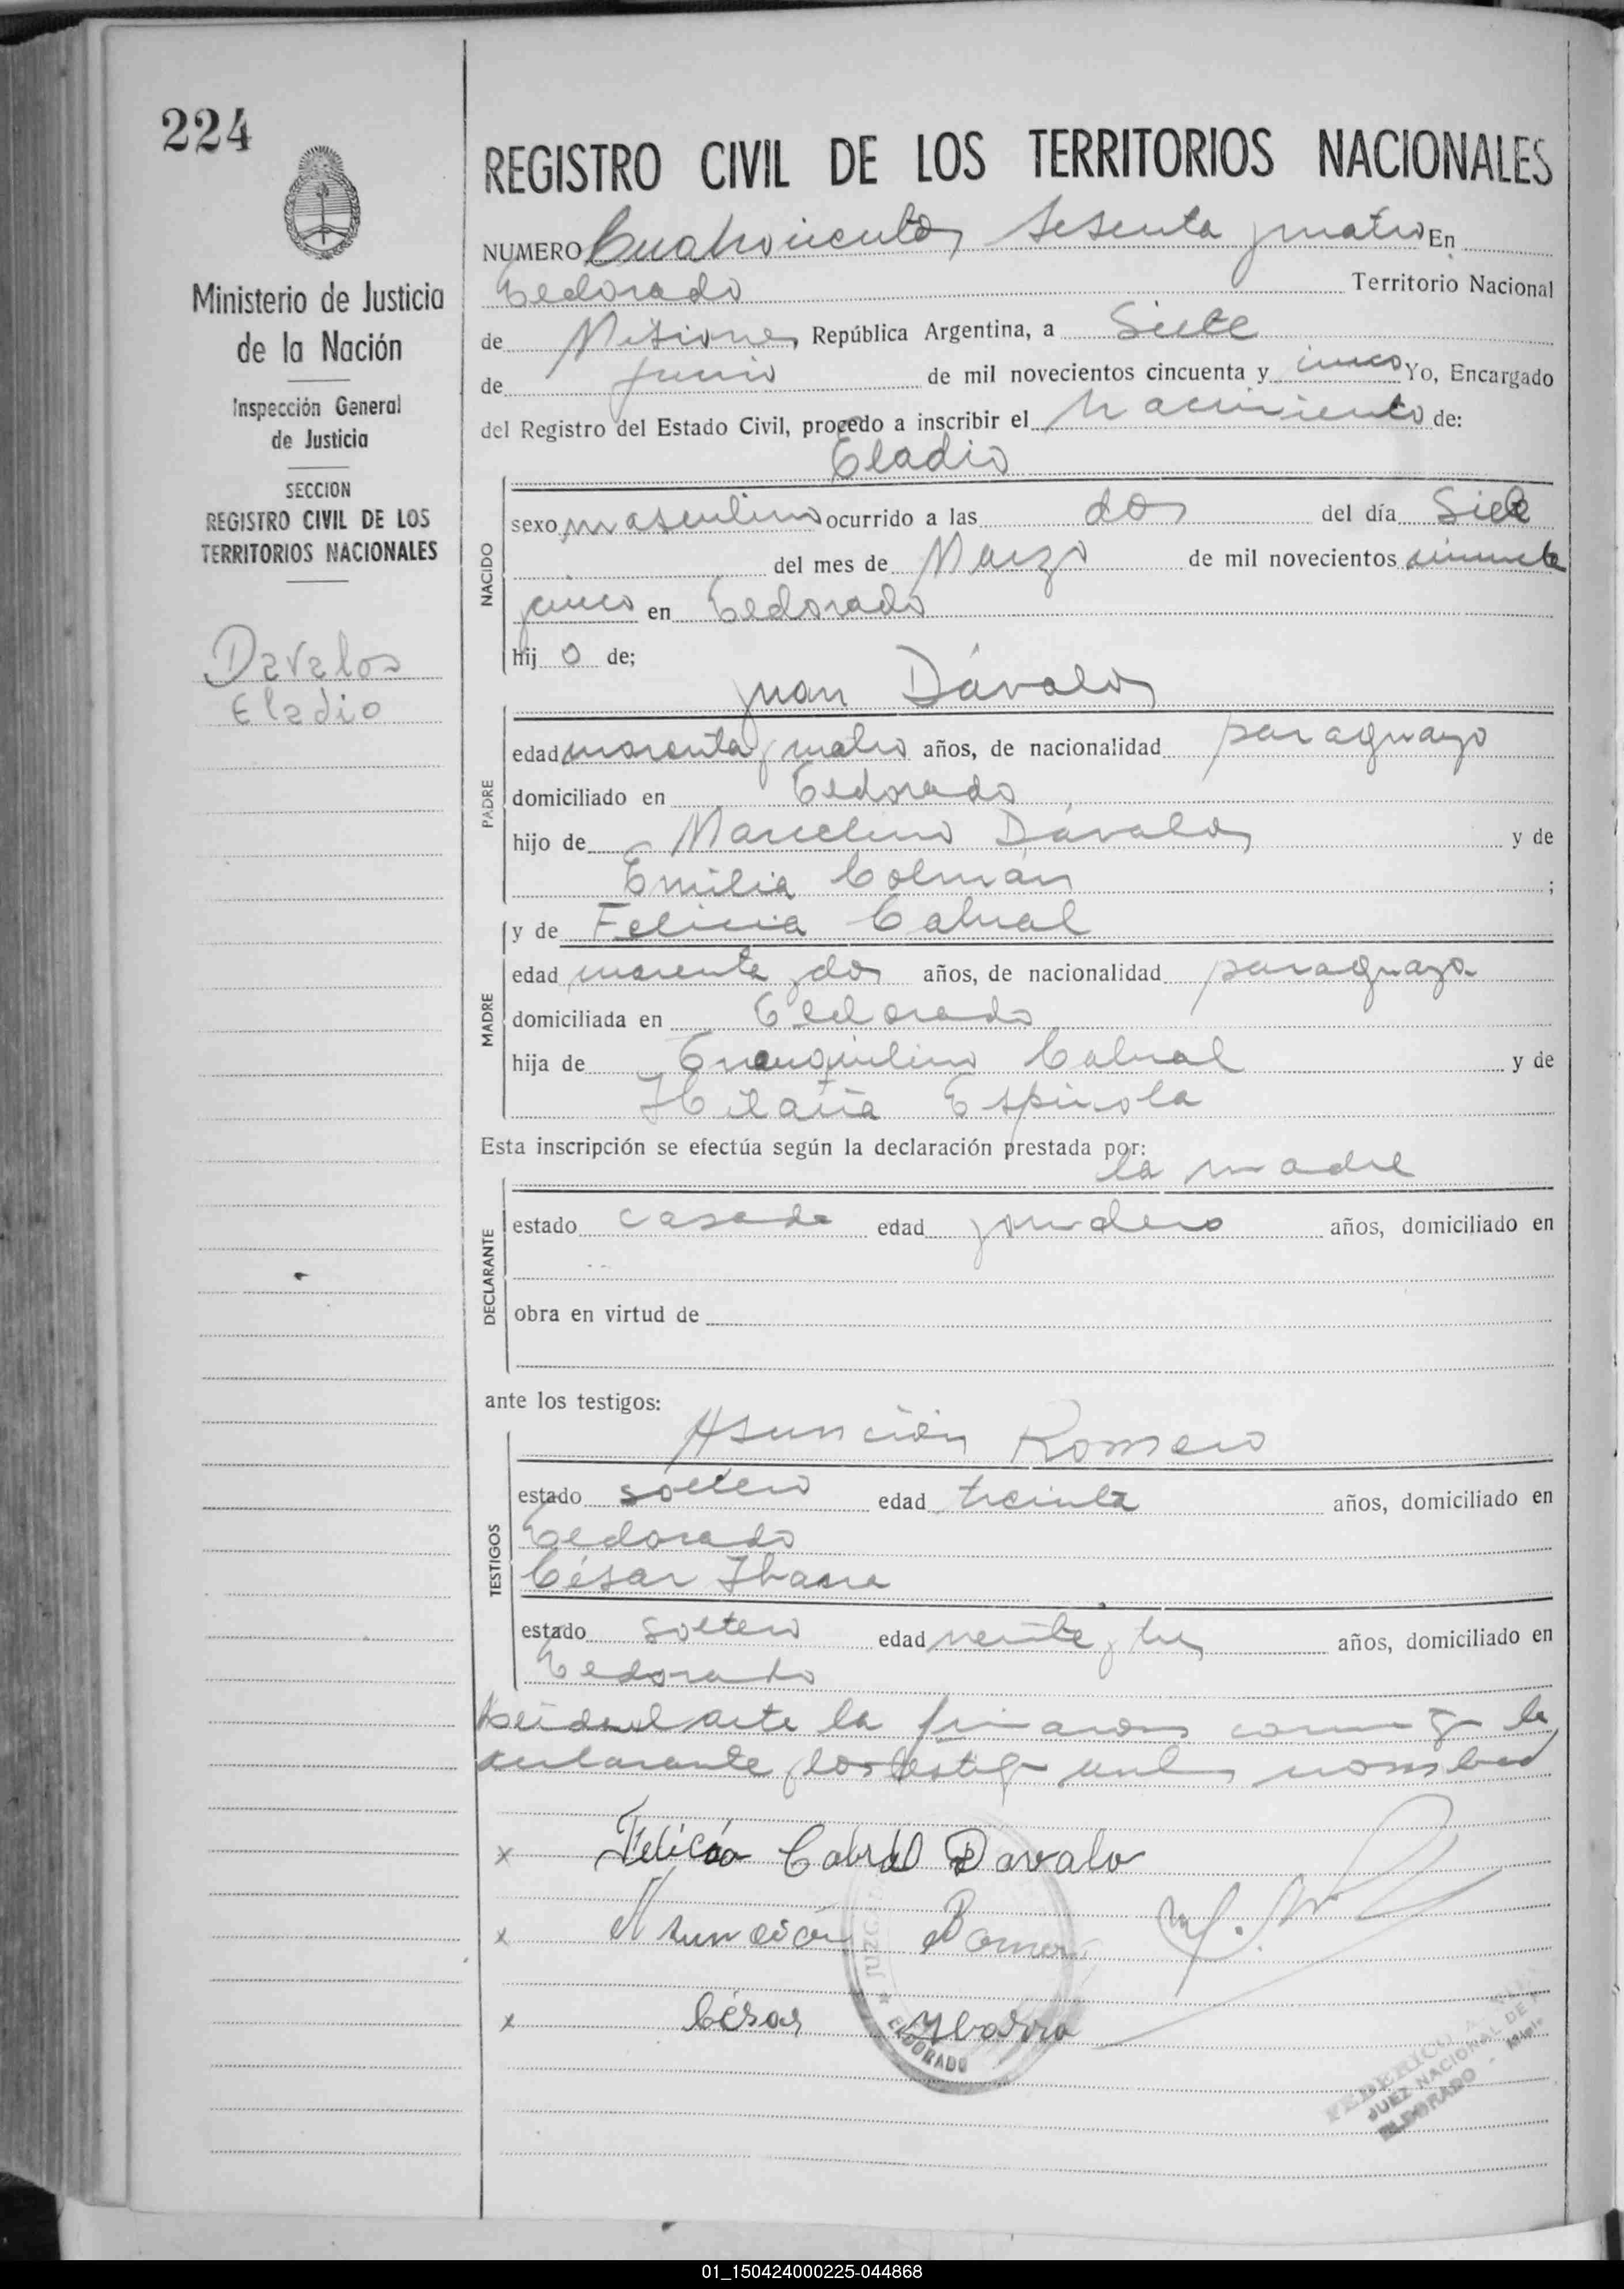 224
Ministerio de Justicia
de la Nación
Inspección General
de Justicia
SECCION
REGISTRO CIVIL DE LOS
TERRITORIOS NACIONALES
Davalos
Eladio
REGISTRO CIVIL DE LOS TERRITORIOS NACIONALES
NUMERO Cuatrocientos sesenta y cuatro En
Eldorado Territorio Nacional
de Misiones, República Argentina, a Siete
de junio de mil novecientos cincuenta y cinco Yo, Encargado
del Registro del Estado Civil, procedo a inscribir el Nacimiento de:
Eladio
NACIDO
sexo masculino ocurrido a las dos del día Siete
del mes de Marzo de mil novecientos cincuenta
y cinco en Eldorado
hijo de;
Juan Dávalos
PADRE
edad cuarenta y cuatro años, de nacionalidad paraguayo
domiciliado en Eldorado
hijo de Marcelino Dávalos y de
Emilia Colmán ;
y de Felicia Cabral
MADRE
edad cuarenta y dos años, de nacionalidad paraguaya
domiciliada en Eldorado
hija de Cabral y de
Hilaria Espinola
Esta inscripción se efectúa según la declaración prestada por:
la madre
DECLARANTE
estado casada edad años, domiciliado en
obra en virtud de
ante los testigos:
Asunción Romero
TESTIGOS
estado soltero edad treinta años, domiciliado en
Eldorado
César Ibarra
estado soltero edad veinte y tres años, domiciliado en
Eldorado
acta la firmaron conmigo la
declarante y los testigos nombrados
x Felicia Cabral D Davalo
x Asunción Romero
x César Ybarra
JUZ
ELDORADO
FEDERICO A.
JUEZ NACIONAL DE
ELDORADO -
01_150424000225-044868